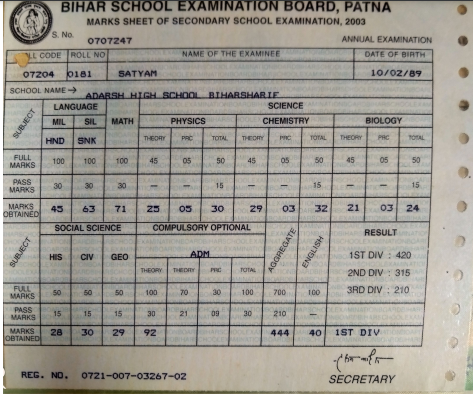 BIHAR SCHOOL EXAMINATION BOARD, PATNA
MARKS SHEET OF SECONDARY SCHOOL EXAMINATION, 2003
S. No. 0707247 ANNUAL EXAMINATION
ROLL CODE ROLL NO NAME OF THE EXAMINEE DATE OF BIRTH
07204 0181 SATYAM 10/02/89
SCHOOL NAME → ADARSH HIGH SCHOOL BIHARSHARIF
SUBJECT LANGUAGE MATH SCIENCE
MIL SIL PHYSICS CHEMISTRY BIOLOGY
HND SNK THEORY PRC TOTAL THEORY PRC TOTAL THEORY PRC TOTAL
FULL MARKS 100 100 100 45 05 50 45 05 50 45 05 50
PASS MARKS 30 30 30 — — 15 — — 15 — — 15
MARKS OBTAINED 45 63 71 25 05 30 29 03 32 21 03 24
SUBJECT SOCIAL SCIENCE COMPULSORY OPTIONAL AGGREGATE ENGLISH RESULT
HIS CIV GEO ADM 1ST DIV : 420
THEORY THEORY PRC TOTAL 2ND DIV : 315
FULL MARKS 50 50 50 100 70 30 100 700 100 3RD DIV : 210
PASS MARKS 15 15 15 30 21 09 30 210 —
MARKS OBTAINED 28 30 29 92 444 40 1ST DIV
REG. NO. 0721-007-03267-02 SECRETARY